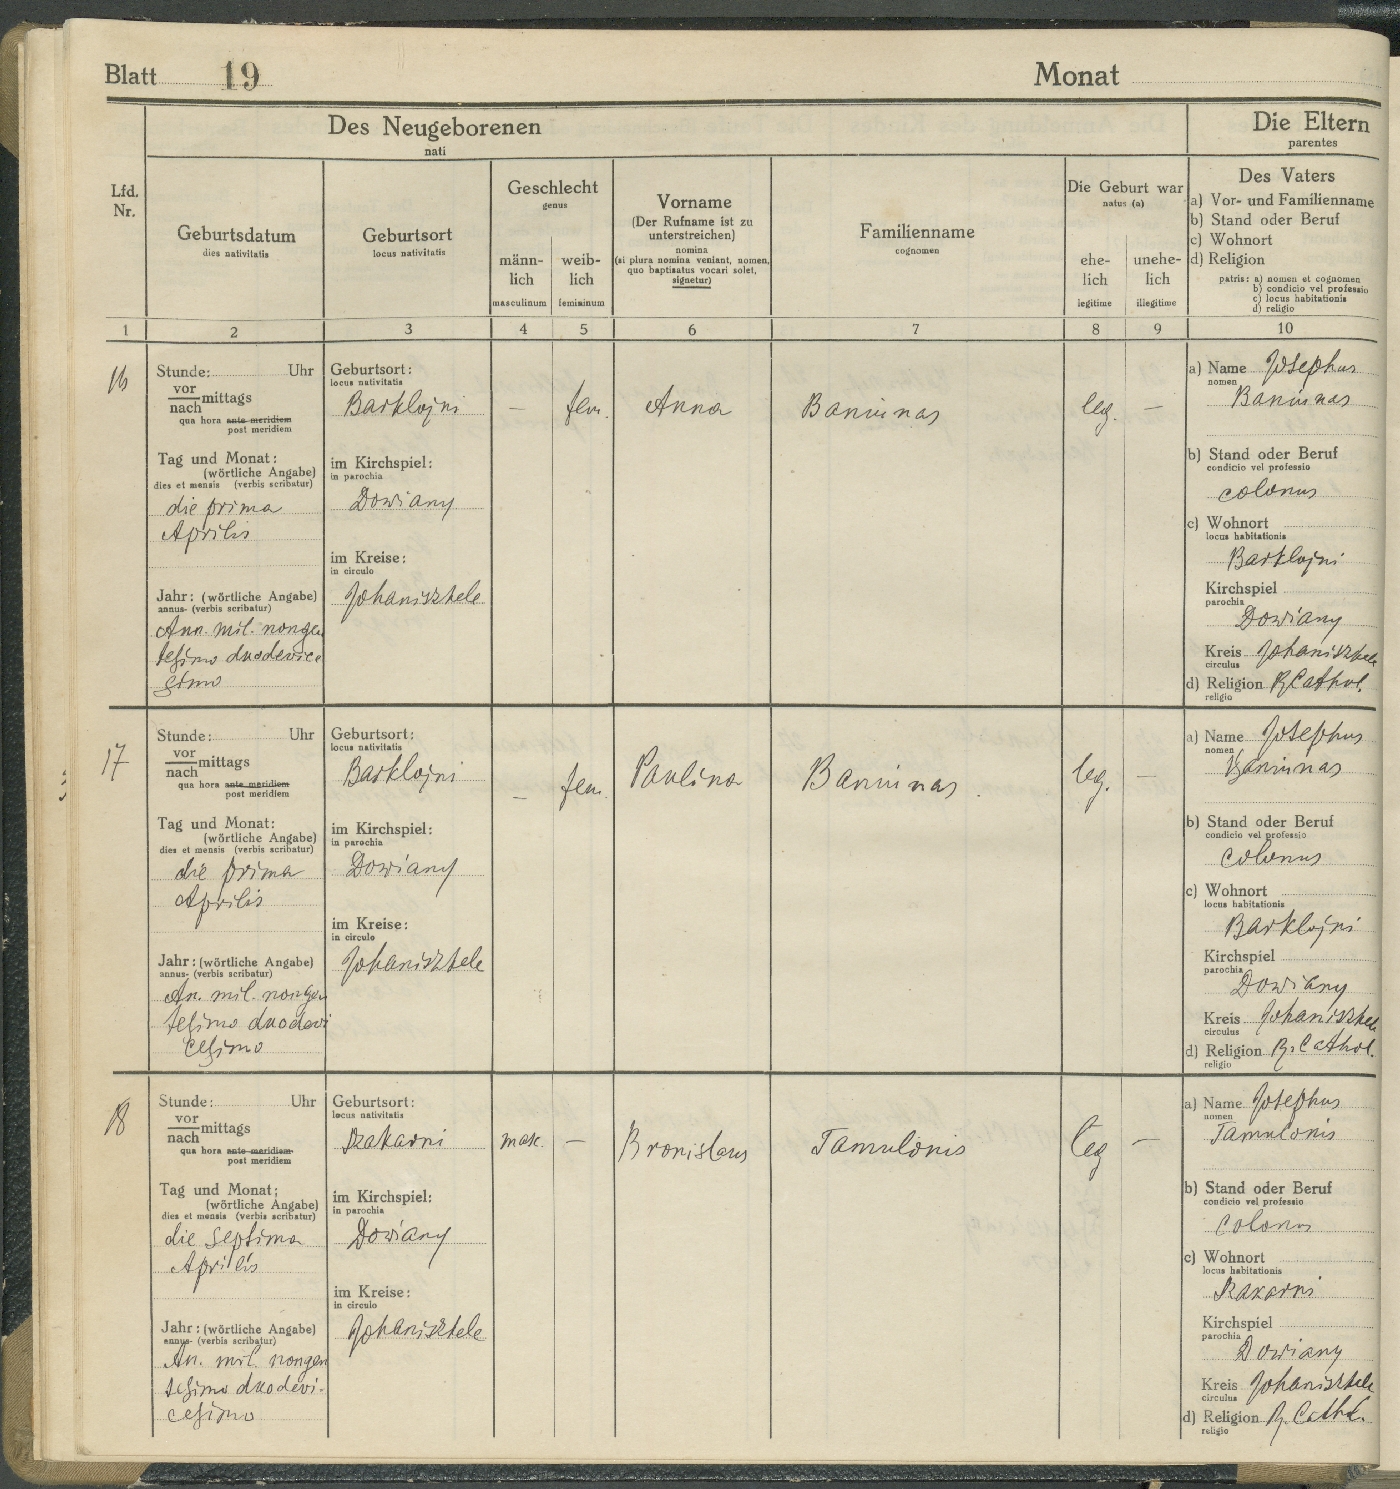 Blatt 19
Monat
Des Neugeborenen
nati
Die Eltern
parentes
Lfd.
Nr.
Geburtsdatum
dies nativitatis
Geburtsort
locus nativitatis
Geschlecht
genus
männ-
lich
masculinum
weib-
lich
femininum
Vorname
(Der Rufname ist zu
unterstreichen)
nomina
(si plura nomina veniant, nomen,
quo baptisatus vocari solet,
signetur)
Familienname
cognomen
Die Geburt war
natus (a)
ehe-
lich
legitime
unehe-
lich
illegitime
Des Vaters
a) Vor- und Familienname
b) Stand oder Beruf
c) Wohnort
d) Religion
patris: a) nomen et cognomen
b) condicio vel professio
c) locus habitationis
d) religio
1 2 3 4 5 6 7 8 9 10
16
Stunde: Uhr
vor
nach mittags
qua hora ante meridiem
post meridiem
Tag und Monat:
(wörtliche Angabe)
dies et mensis (verbis scribatur)
die prima
Aprilis
Jahr: (wörtliche Angabe)
annus- (verbis scribatur)
Ann. mil. nongen
tesimo duodevice
simo
Geburtsort:
locus nativitatis
Barklojni
im Kirchspiel:
in parochia
Dowiany
im Kreise:
in circulo
Johanisztele
—
fem.
Anna
Baniunas
leg.
—
a) Name Josephus
nomen
Baniunas
b) Stand oder Beruf
condicio vel professio
colonus
c) Wohnort
locus habitationis
Barklojni
Kirchspiel
parochia
Dowiany
Kreis Johanisztele
circulus
d) Religion R. Cathol.
religio
17
Stunde: Uhr
vor
nach mittags
qua hora ante meridiem
post meridiem
Tag und Monat:
(wörtliche Angabe)
dies et mensis (verbis scribatur)
die prima
Aprilis
Jahr: (wörtliche Angabe)
annus- (verbis scribatur)
An. mil. nongen
tesimo duodevi
cesimo
Geburtsort:
locus nativitatis
Barklojni
im Kirchspiel:
in parochia
Dowiany
im Kreise:
in circulo
Johanisztele
—
fem.
Paulina
Baniunas.
leg.
—
a) Name Josephus
nomen
Baniunas
b) Stand oder Beruf
condicio vel professio
colonus
c) Wohnort
locus habitationis
Barklojni
Kirchspiel
parochia
Dowiany
Kreis Johanisztele
circulus
d) Religion R. Cathol.
religio
18
Stunde: Uhr
vor
nach mittags
qua hora ante meridiem
post meridiem
Tag und Monat:
(wörtliche Angabe)
dies et mensis (verbis scribatur)
die septima
Aprilis
Jahr: (wörtliche Angabe)
annus- (verbis scribatur)
An. mil. nongen
tesimo duodevi-
cesimo
Geburtsort:
locus nativitatis
im Kirchspiel:
in parochia
Dowiany
im Kreise:
in circulo
Johanisztele
masc.
—
Bronislaus
Tamulonis
leg
—
a) Name Josephus
nomen
Tamulonis
b) Stand oder Beruf
condicio vel professio
colonus
c) Wohnort
locus habitationis
Kirchspiel
parochia
Dowiany
Kreis Johanisztele
circulus
d) Religion R. Cathol.
religio